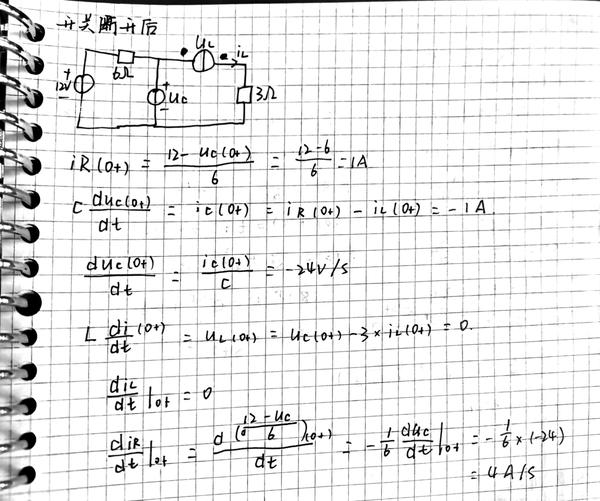 开关断开后
12V
+
-
6Ω
uL
iL
+
uc
-
3Ω
iR(0+) = 12-uc(0+)/6 = 12-6/6 = 1A
C duc(0+)/dt = ic(0+) = iR(0+) - iL(0+) = -1A.
duc(0+)/dt = ic(0+)/C = -24V/S
L di/dt(0+) = uL(0+) = uc(0+)-3×iL(0+) = 0.
diL/dt|0+ = 0
diR/dt|0+ = d(12-uc/6)(0+)/dt = -1/6 duc/dt|0+ = -1/6×(-24)
= 4A/S